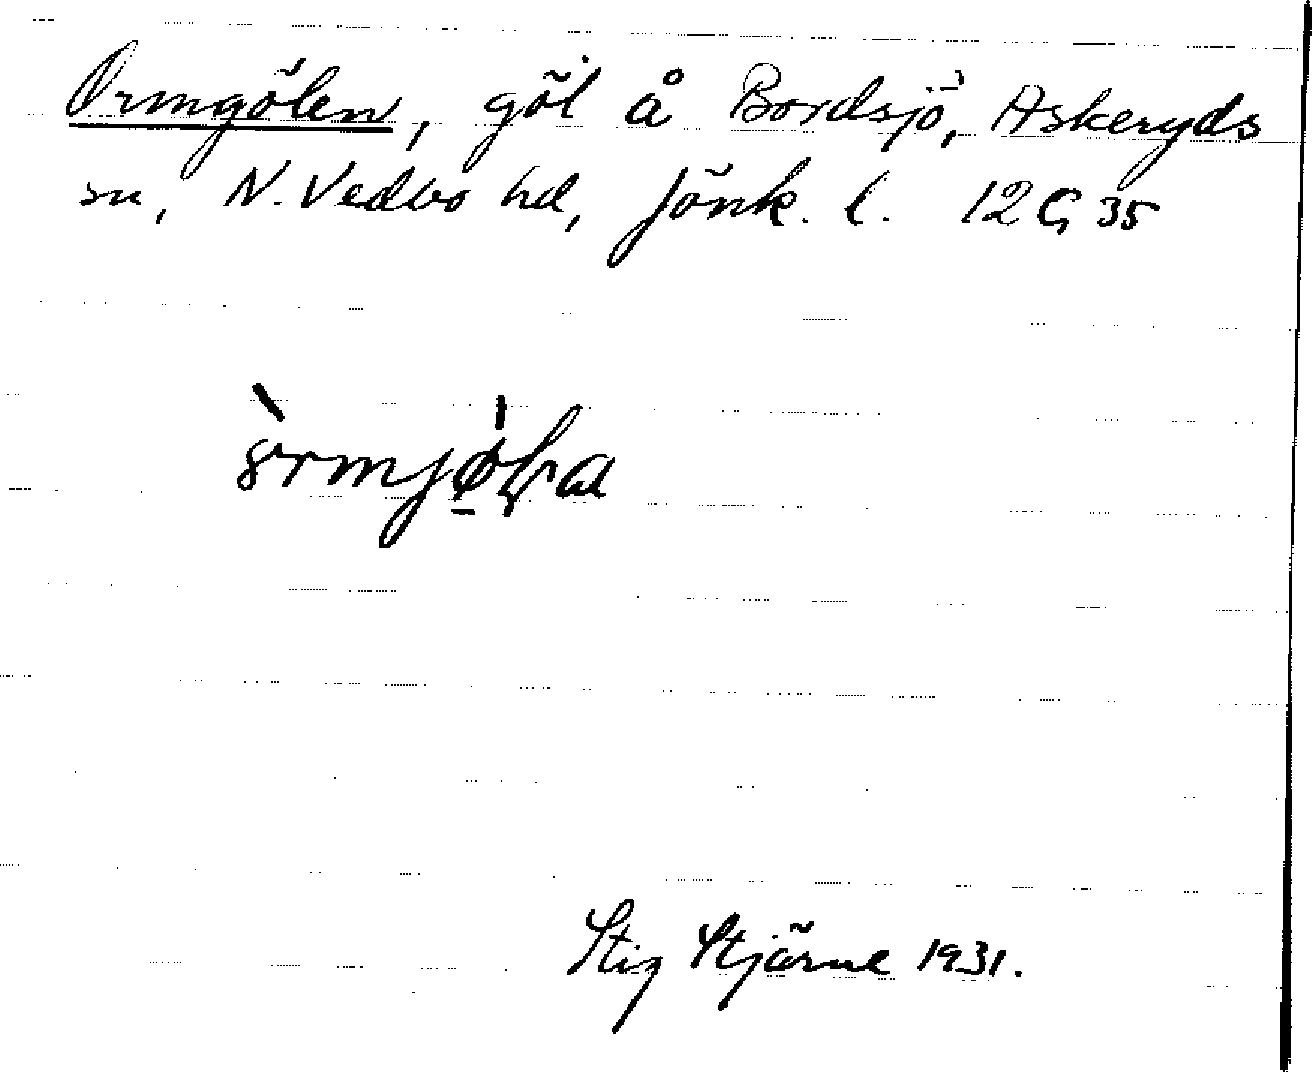 Ormgölen, göl å Bordsjö, Askeryds
sn, N. Vedbo hd, Jönk. l. 12 G 35
Stig Stjärne 1931.